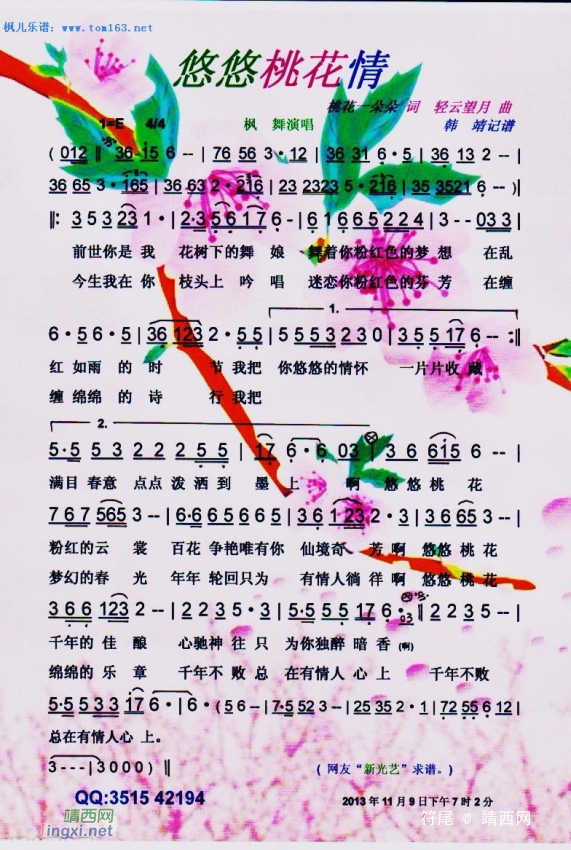 枫儿乐谱：www.tom163.net
悠悠桃花情
桃花一朵朵 词 轻云望月 曲
1=E 4/4
枫 舞演唱
韩 靖记谱
(012 ‖ 36·15 6 -- | 76 56 3·12 | 36 31 6·5 | 36 13 2 -- |
36 65 3·165 | 36 63 2·216 | 23 2323 5·216 | 35 3521 6 -- )|
‖: 3 5 3 23 1· | 2·3 5 6 1 7 6 - | 6 1 6 6 5 2 2 4 | 3 -- 03 3 |
前世你是 我 花树下的舞 娘 舞着你粉红色的梦 想 在乱
今生我在 你 枝头上 吟 唱 迷恋你粉红色的芬 芳 在缠
1.
6·5 6·5 | 36 123 2·5 5 | 5 5 5 3 2 3 0 | 3 5 5 17 6 -- :‖
红 如雨 的 时 节 我把 你悠悠的情怀 一片片收 藏
缠 绵绵 的 诗 行 我把
2.
5·5 5 3 2 2 2 5 5 | 17 6·6 03 | 3 6 615 6 -- |
满目 春意 点点 泼 洒到 墨 上 啊 悠悠 桃 花
7 6 7 565 3 -- | 6·6 6 5 6 6 5 | 3 6 1 23 2·3 | 3 6 65 3 -- |
粉红的云 裳 百花 争艳唯有你 仙境奇 芳 啊 悠悠 桃 花
梦幻的春 光 年年 轮回只为 有情人徜 徉 啊 悠悠 桃 花
3 6 6 123 2 -- | 2 2 3 5·3 | 5·5 5 5 17 6·03 ‖ 2 2 3 5 -- |
千年的 佳 酿 心驰神 往 只 为你独醉 暗 香 (啊)
绵绵的 乐 章 千年不 败 总 在有情人 心 上 千年不败
5·5 5 3 3 17 6· | 6· ( 5 6 -- | 7·5 52 3 -- | 25 35 2·1 | 72 55 6 12 |
总在有情人心 上。
3 --- | 3 0 0 0 ) ‖
( 网友“新光艺”求谱。)
QQ:3515 42194
2013 年 11 月 9 日下午 7 时 2 分
靖西网
jingxi.net
符尾 @ 靖西网